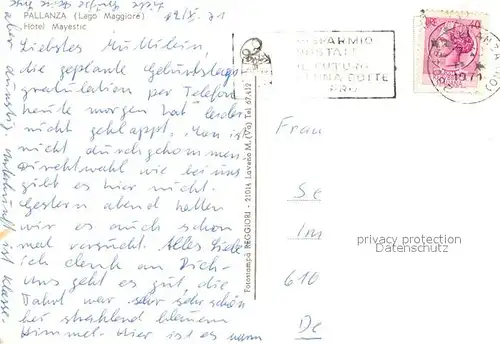 PALLANZA (Lago Maggiore)
Hotel Mayestic
12/IX. 71
Liebstes Muttilein,
die geplante Geburtstags
gratulation per Telefon
heute morgen hat leider
nicht geklappt. Man ist
nicht durchgekommen.
Direktwahl wie bei uns
gibt es hier nicht.
Gestern abend hatten
wir es auch schon
mal versucht. Alles Liebe
ich denk an Dich-
Uns geht es gut, die
Fahrt war sehr sehr schön
bei strahlend blauem
Himmel. Hier ist es warm
aber
Unterkunft ist Klasse.
Fotostampa REGGIORI - 21014 Laveno M. (Va) Tel 67.412
RISPARMIO
POSTALE
IL FUTURO
PRO
40
Frau
Se
Im
610
De
privacy protection
Datenschutz